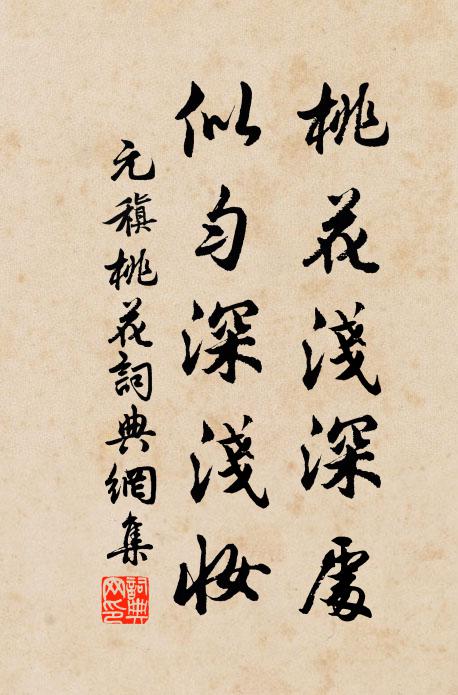 桃花淺深處
似勻深淺妝
元稹桃花詞典網集
詞典
网印